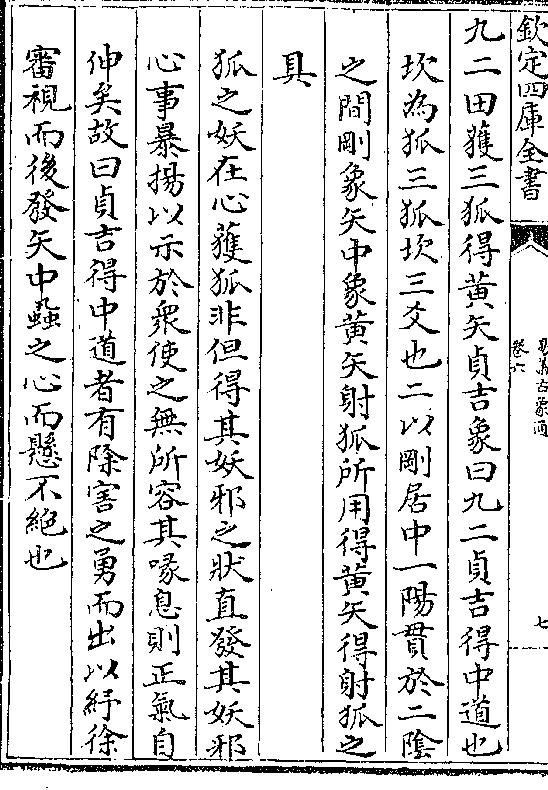 欽定四庫全書
易筮古象通
卷六
七
九二田獲三狐得黃矢貞吉象曰九二貞吉得中道也
坎為狐三狐坎三爻也二以剛居中一陽貫於二陰
之間剛象矢中象黃矢射狐所用得黃矢得射狐之
具
狐之妖在心獲狐非但得其妖邪之狀直發其妖邪
心事暴揚以示於衆使之無所容其喙息則正氣自
伸矣故曰貞吉得中道者有除害之勇而出以紓徐
審視而後發矢中蝨之心而懸不絕也